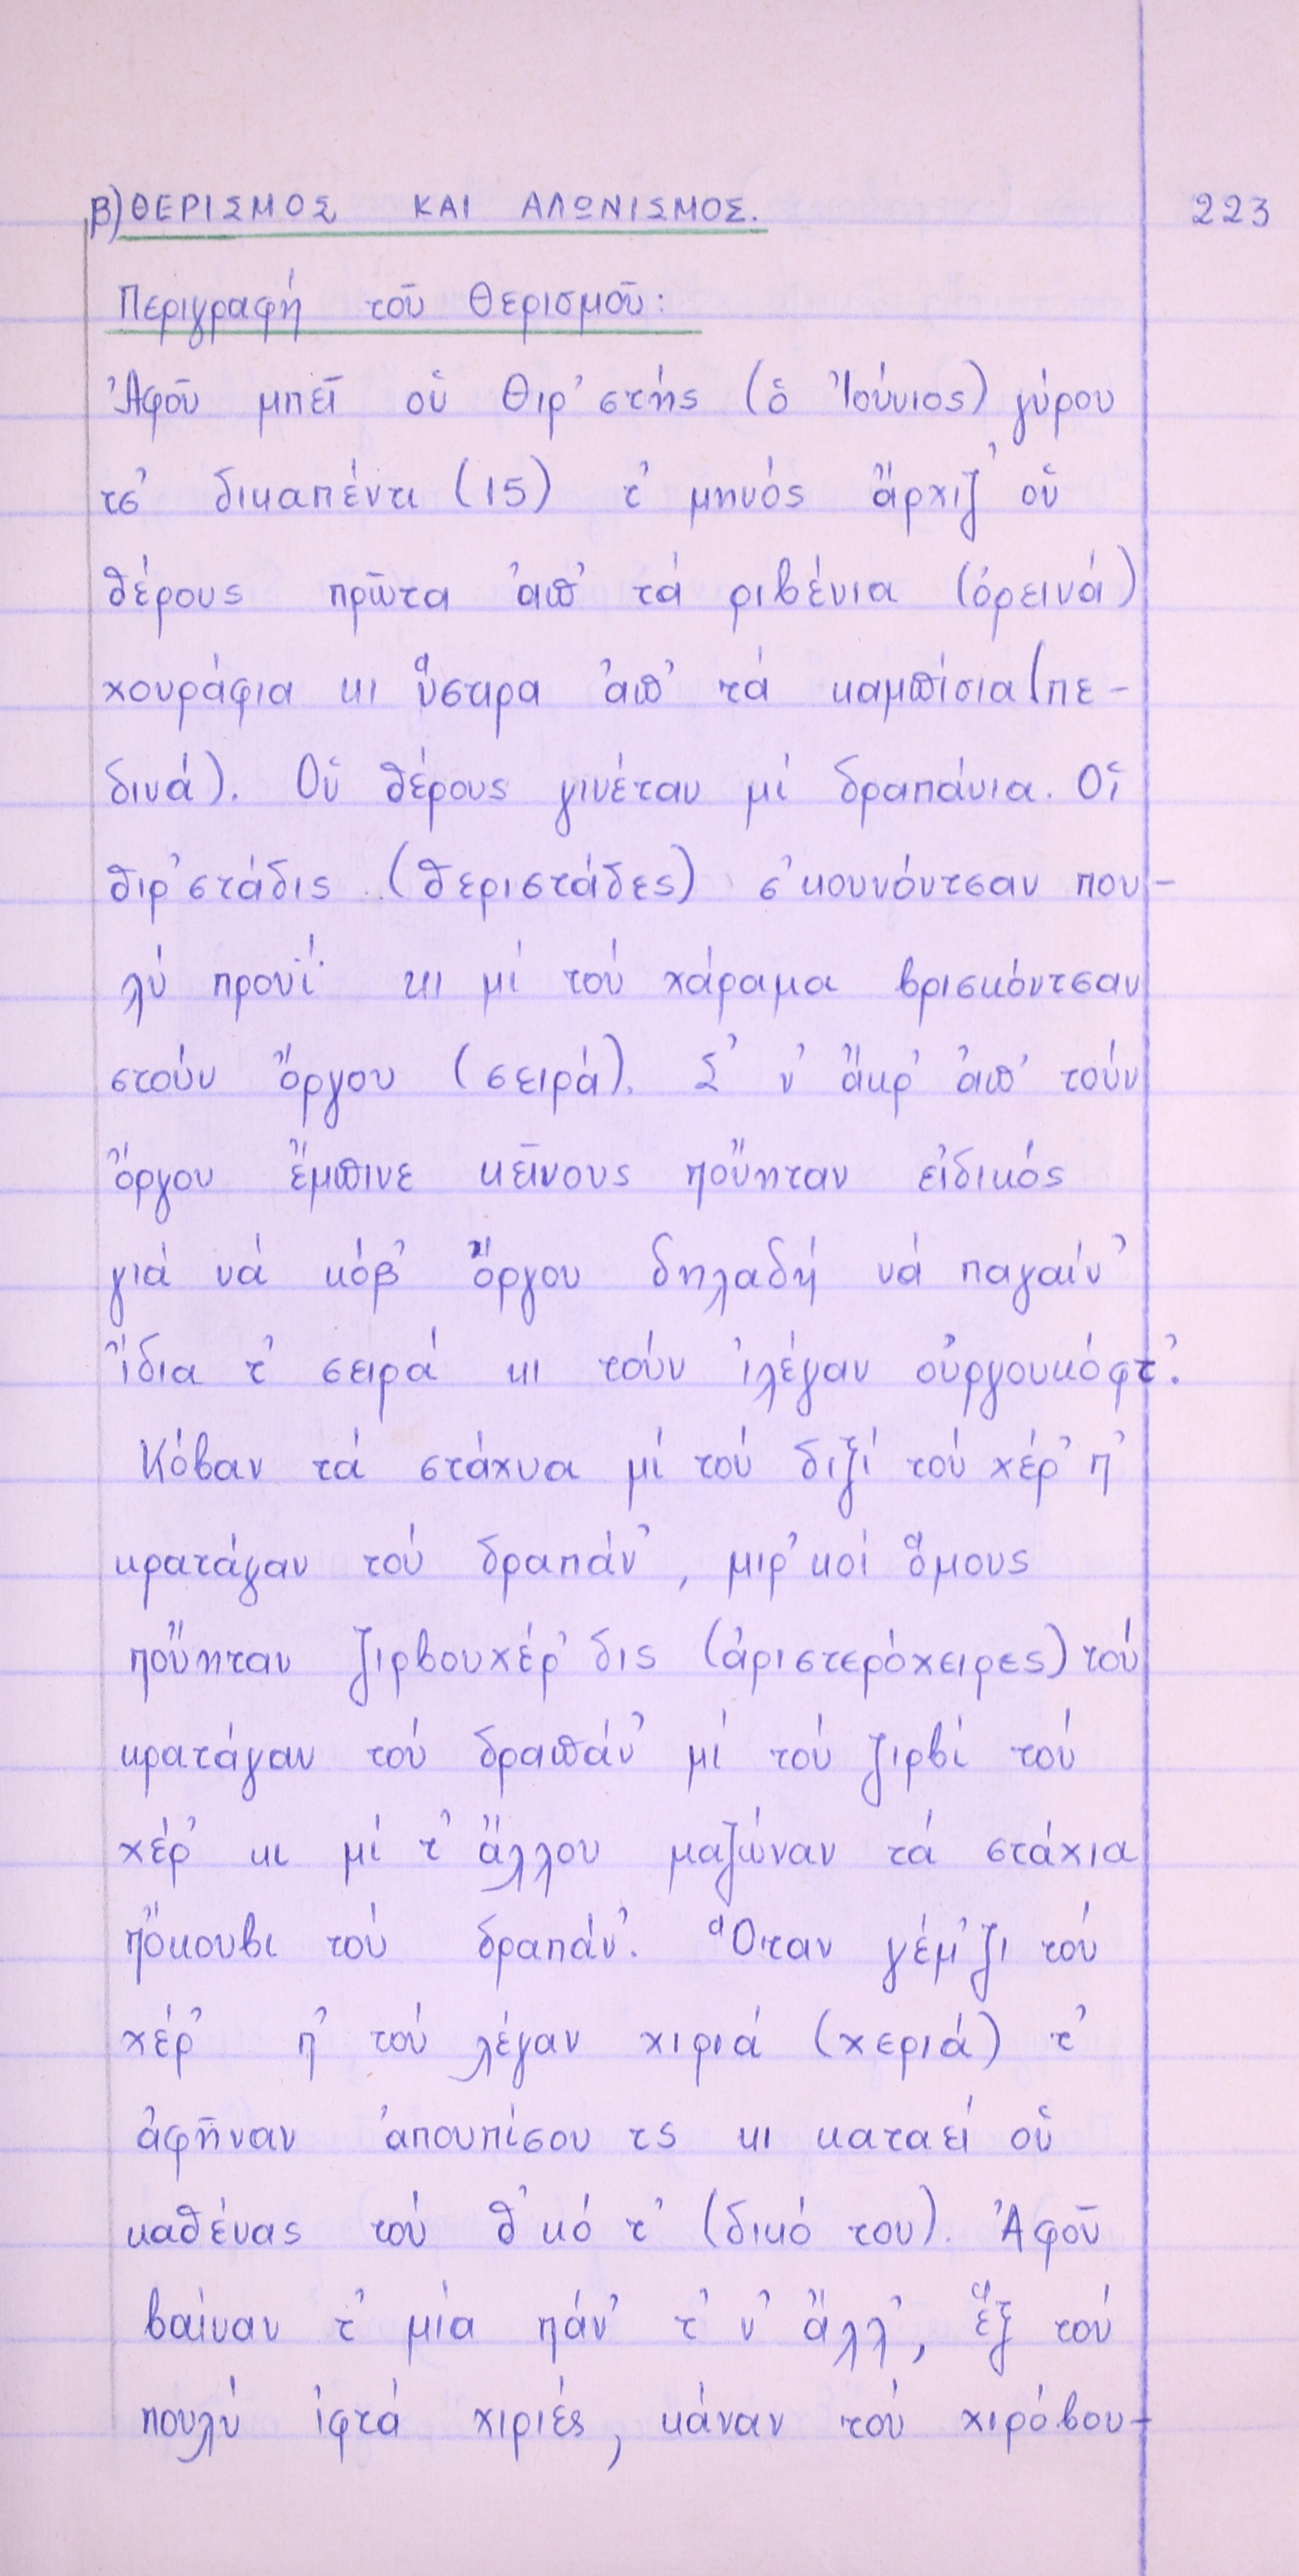 β) ΘΕΡΙΣΜΟΣ ΚΑΙ ΑΛΩΝΙΣΜΟΣ. 223
Περιγραφή τοῦ Θερισμοῦ:
Ἀφοῦ μπεῖ οὑ Θιρ'στής (ὁ Ἰούνιος) γύρου
τσ' δικαπέντι (15) τ' μηνός ἄρχιζ' οὑ
θέρους πρῶτα ἀπ' τά ριβένια (ὀρεινά)
χουράφια κι ὕστιρα ἀπ' τά καμπίσια (πε-
δινά). Οὑ θέρους γινέταν μί δραπάνια. Οἱ
θιρ'στάδις (θεριστάδες) σ'κουνόντσαν που-
λύ προυΐ κι μί τού χάραμα βρισκόντσαν
στούν ὄργου (σειρά). Σ' ν' ἄκρ' ἀπ' τούν
ὄργου ἔμπινε κεῖνους ποὔηταν εἰδικός
γιά νά κόβ' ὄργου δηλαδή νά παγαίν'
ἴδια τ' σειρά κι τούν ἰλέγαν οὐργουκόφτ'.
Κόβαν τά στάχυα μί τού διξί τού χέρ' π'
κρατάγαν τού δραπάν', μιρ'κοί ὅμους
ποὔηταν ζιρβουχέρ'δις (ἀριστερόχειρες) τού
κρατάγαν τού δραπάν' μί τού ζιρβί τού
χέρ' κι μί τ' ἄλλου μαζώναν τά στάχια
πὄκουβι τού δραπάν'. Ὅταν γέμ'ζι τού
χέρ' π' τού λέγαν χιριά (χεριά) τ'
ἀφῆναν ἀπουπίσου τς κι καταεί οὑ
καθένας τού θ'κό τ' (δικό του). Ἀφοῦ
βαίναν τ' μία πάν' τ' ν' ἄλλ', ἕξ τού
πουλύ ἰφτά χιριές, κάναν τού χιρόβου-